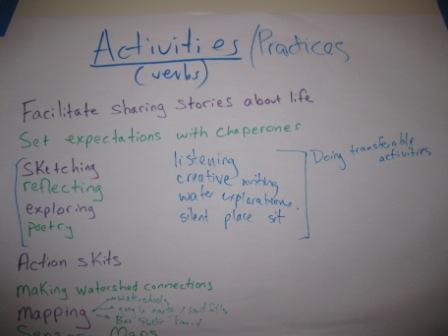 Activities/Practices
(verbs)
Facilitate sharing stories about life
Set expectations with chaperones
Sketching
reflecting
exploring
poetry
listening
creative writing
water explorations
silent place sit
Doing transferable activities
Action skits
making watershed connections
mapping
watersheds
google earth /
Maps